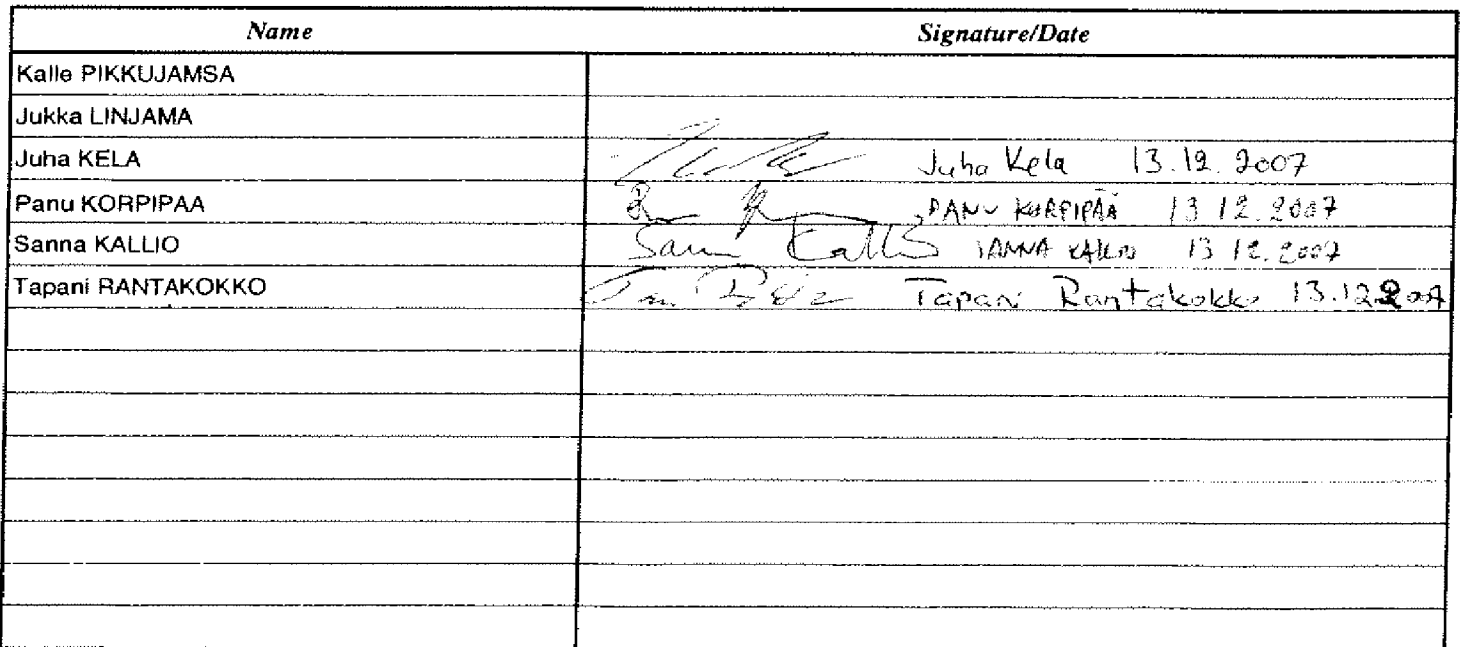 Name Signature/Date
Kalle PIKKUJAMSA
Jukka LINJAMA
Juha KELA Juha Kela 13.12.2007
Panu KORPIPAA PANU KORPIPÄÄ 13 12.2007
Sanna KALLIO Sanna Kallio SANNA KALLIO 13 12.2007
Tapani RANTAKOKKO Tapani Rantakokko 13.12.2007